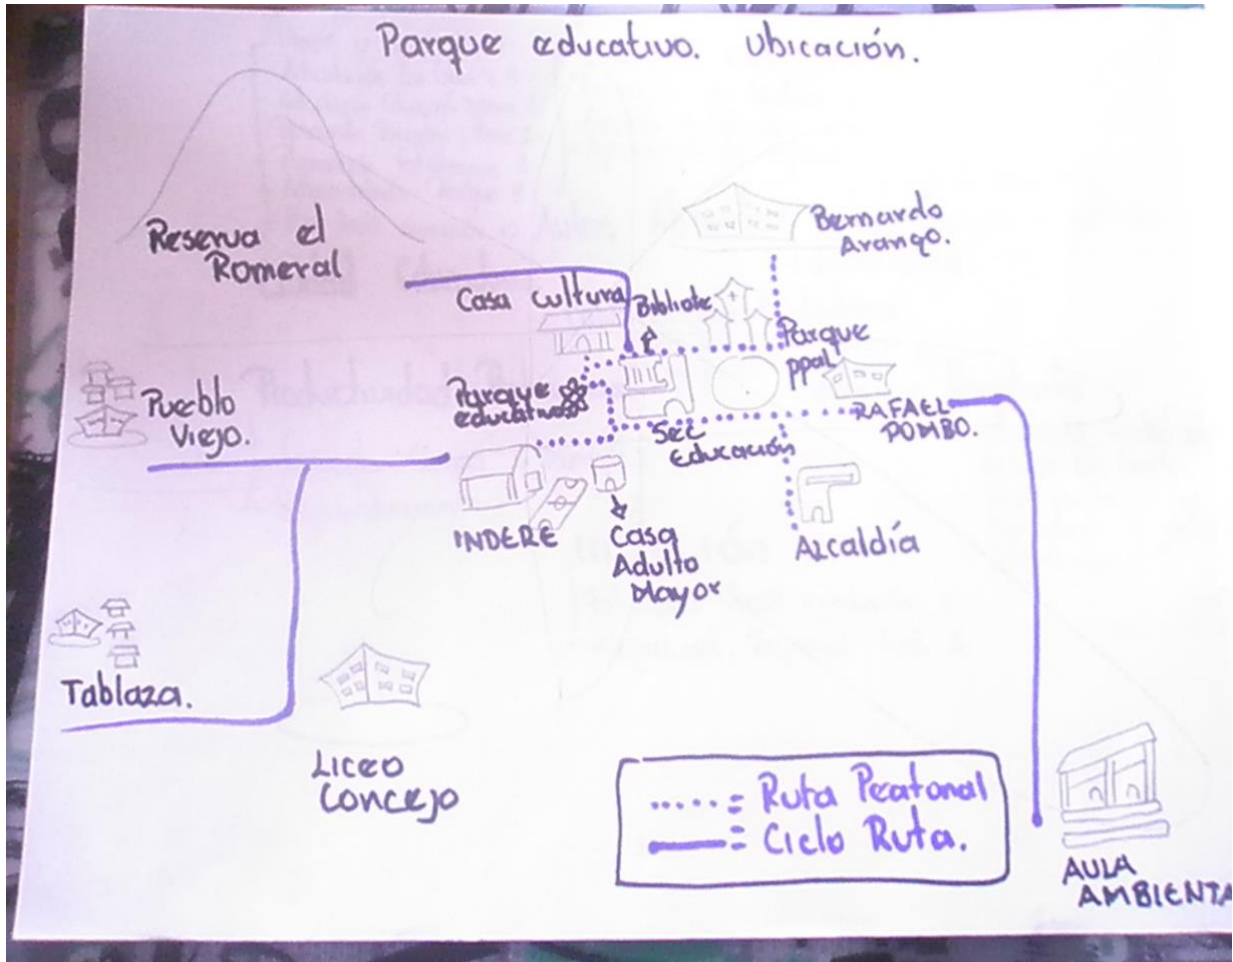 Parque educativo. Ubicación.
Reserva el
Romeral
Bernardo
Arango.
Casa cultura
Bibliote
Parque
ppal
Pueblo
Viejo.
Parque
educativo
RAFAEL
POMBO.
Sec
Educación
INDERE
Casa
Adulto
Mayor
Alcaldía
Tablaza.
Liceo
Concejo
..... = Ruta Peatonal
= Ciclo Ruta.
AULA
AMBIENTA